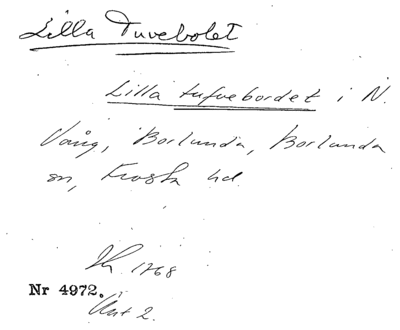 Lilla Tuvebolet
Lilla tufvebordet i N.
Vång, Borlunda, Borlunda
sn, Frosta hd
1768
Nr 4972.
Akt 2.